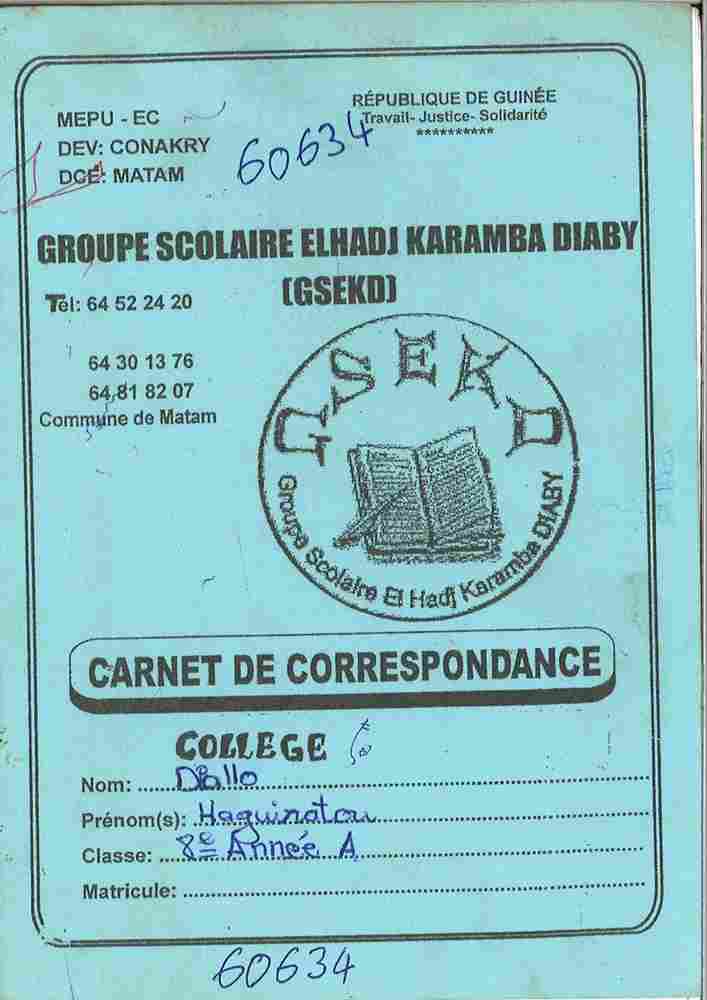 MEPU - EC
DEV: CONAKRY
DCE: MATAM
RÉPUBLIQUE DE GUINÉE
Travail- Justice- Solidarité
**********
60634
GROUPE SCOLAIRE ELHADJ KARAMBA DIABY
(GSEKD)
Tél: 64 52 24 20
64 30 13 76
64,81 82 07
Commune de Matam
GSEKD
Groupe Scolaire El Hadj Karamba DIABY
CARNET DE CORRESPONDANCE
COLLEGE
Nom: Diallo
Prénom(s): Haguinatou
Classe: 8e Année A
Matricule:
60634